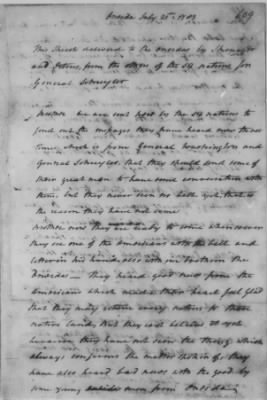 Oneida July 21st 1783
659
This Speech delivered to the Oneidas by
and Peter, from the of the six nations for
General Schuyler
Brother we are sent here by the six nations to
find out the they have heard now three
Time, which is from General Washington and
General Schuyler, that they should send some of
their great men to have some conversation with
them, but they never seen no belt yet, that is
the reason they have not come
Brother now they are ready to come whensoever
they see one of the Americans with the belt and
letter in his hand, also with our brother the
Oneidas — they heard good news from the
Americans which makes their heart feel glad
that they may return every nations to their
native land, but they can't believe it yet
because they have not seen the thing which
always confirms the matter spoken of, they
have also heard bad news with the good by
some young men, from